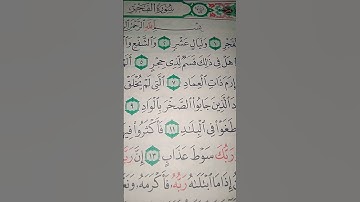 سُورَةُ الفَجْرِ
بِسْمِ اللَّهِ الرَّحْمَٰنِ
وَلَيَالٍ عَشْرٍ ٢ وَالشَّفْعِ
هَلْ فِي ذَٰلِكَ قَسَمٌ لِذِي حِجْرٍ ٥
إِرَمَ ذَاتِ الْعِمَادِ ٧ الَّتِي لَمْ يُخْلَقْ
الَّذِينَ جَابُوا الصَّخْرَ بِالْوَادِ ٩
طَغَوْا فِي الْبِلَادِ ١١ فَأَكْثَرُوا
رَبُّكَ سَوْطَ عَذَابٍ ١٣ إِنَّ
إِذَا مَا ابْتَلَاهُ رَبُّهُ فَأَكْرَمَهُ